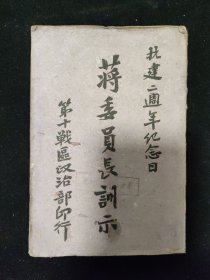 抗建二週年纪念日
蔣委員長訓示
第十戰區政治部印行